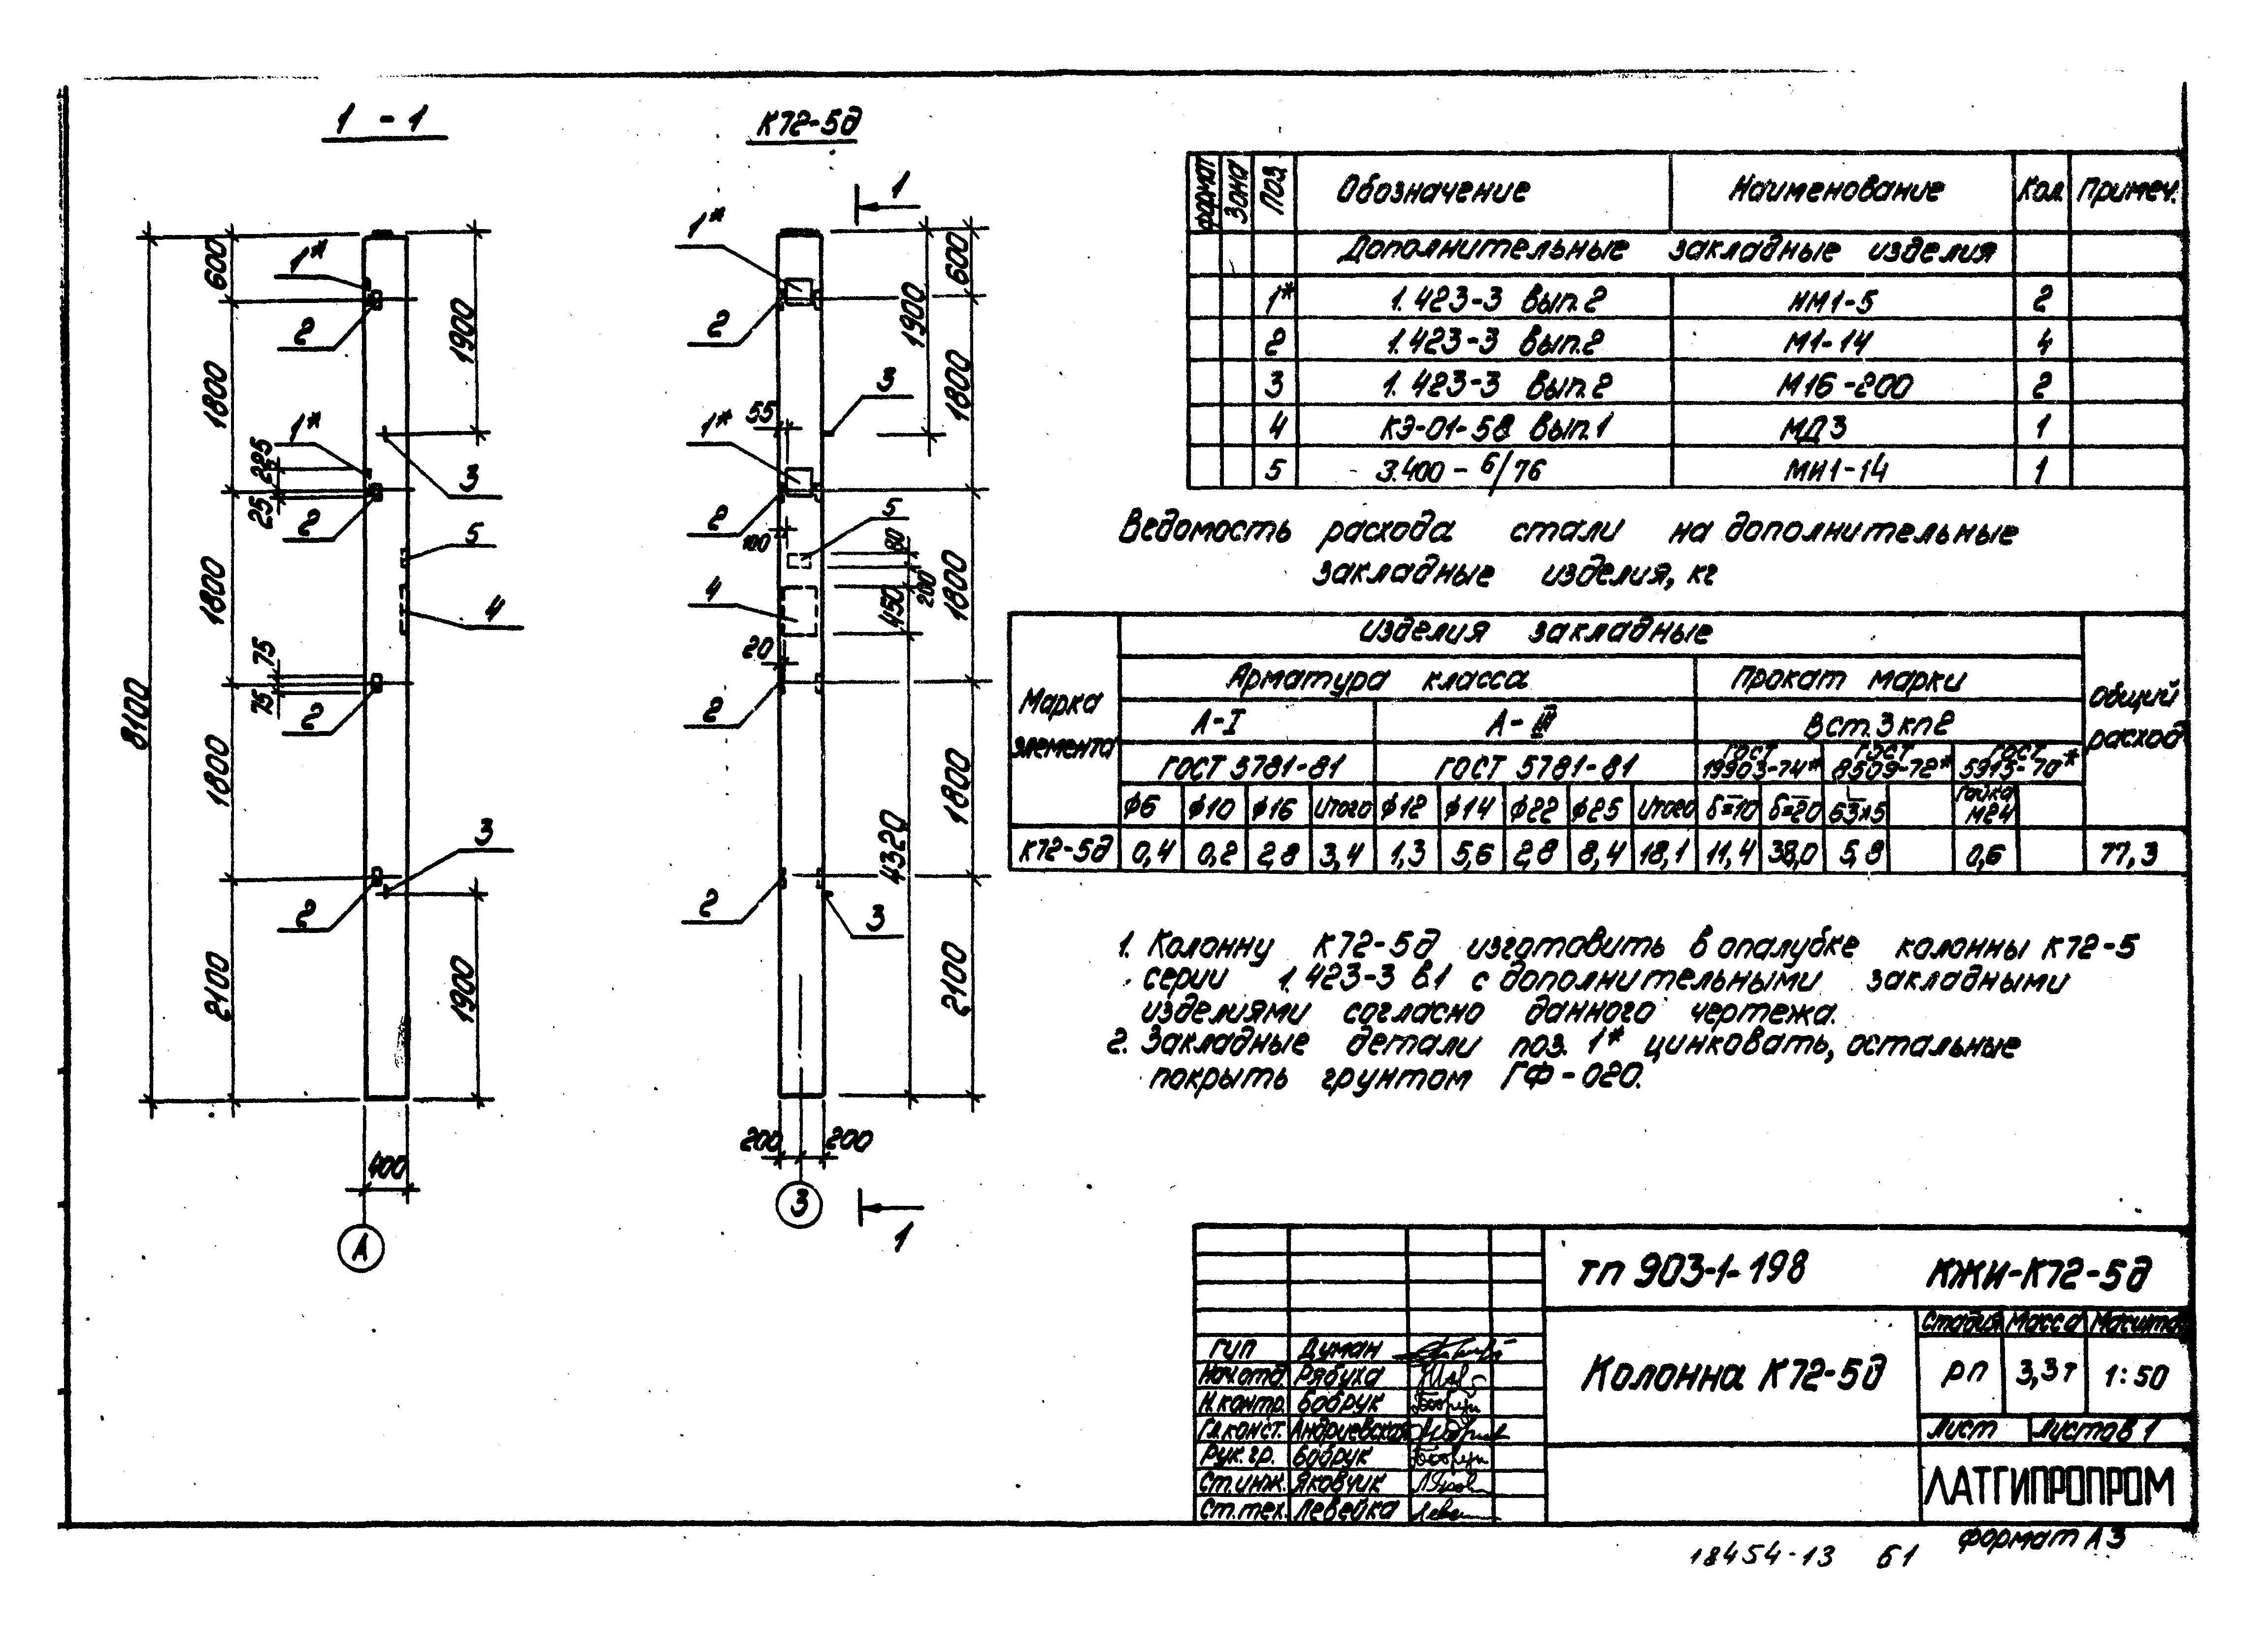 1 - 1
К72-5д
1
1*
2
1*
2
3
5
4
2
3
2
600
1800
225
25
1800
75
75
1800
2100
8100
1900
1900
400
А
1*
2
3
55
1*
2
100
5
4
20
2
2
3
600
1900
1800
80
200
450
1800
4320
1800
2100
200
200
3
1
Формат
Зона
Поз.
Обозначение
Наименование
Кол.
Примеч.
Дополнительные закладные изделия
1* 1.423-3 Вып.2 НМ1-5 2
2 1.423-3 Вып.2 М1-14 4
3 1.423-3 Вып.2 М16-200 2
4 КЭ-01-58 Вып.1 МД3 1
5 3.400-6/76 МИ1-14 1
Ведомость расхода стали на дополнительные
закладные изделия, кг
Марка элемента
Изделия закладные
Общий расход
Арматура класса
Прокат марки
А-I
А-III
Вст.3кп2
ГОСТ 5781-81
ГОСТ 5781-81
ГОСТ 19903-74*
ГОСТ 8509-72*
ГОСТ 5915-70*
ф6 ф10 ф16 Итого ф12 ф14 ф22 ф25 Итого δ=10 δ=20 63х5 Гайка М24
К72-5д 0,4 0,2 2,8 3,4 1,3 5,6 2,8 8,4 18,1 11,4 38,0 5,8 0,6 77,3
1. Колонну К72-5д изготовить в опалубке колонны К72-5
серии 1.423-3 в.1 с дополнительными закладными
изделиями согласно данного чертежа.
2. Закладные детали поз. 1* цинковать, остальные
покрыть грунтом ГФ-020.
ТП 903-1-198 КЖИ-К72-5д
Стадия Масса Масштаб
Колонна К72-5д
РП 3,3т 1:50
Лист Листов 1
ЛАТГИПРОПРОМ
ГИП Думан
Нач.отд. Рябуха
Н.контр. Бобрук
Гл.конст. Андриевская
Рук.гр. Бобрук
Ст.инж. Яковчик
Ст.тех. Левейка
Формат А3
18454-13 61